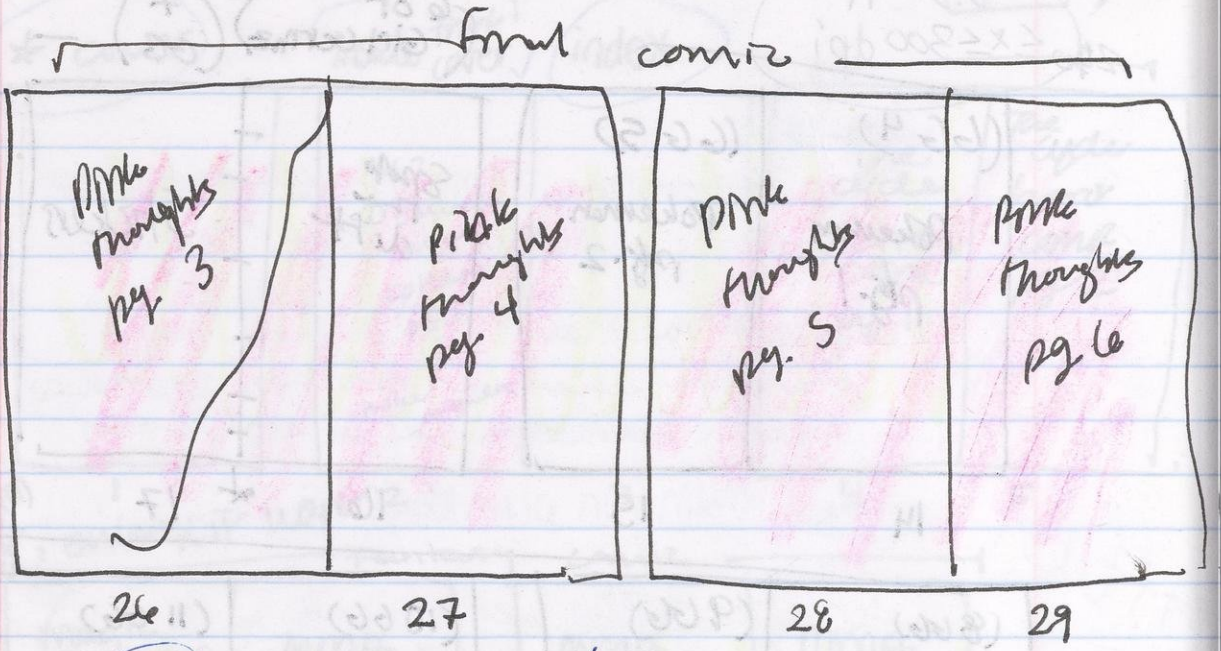 final comic
pink
thoughts
pg. 3
pink
thoughts
pg. 4
pink
thoughts
pg. 5
pink
thoughts
pg 6
26 27 28 29